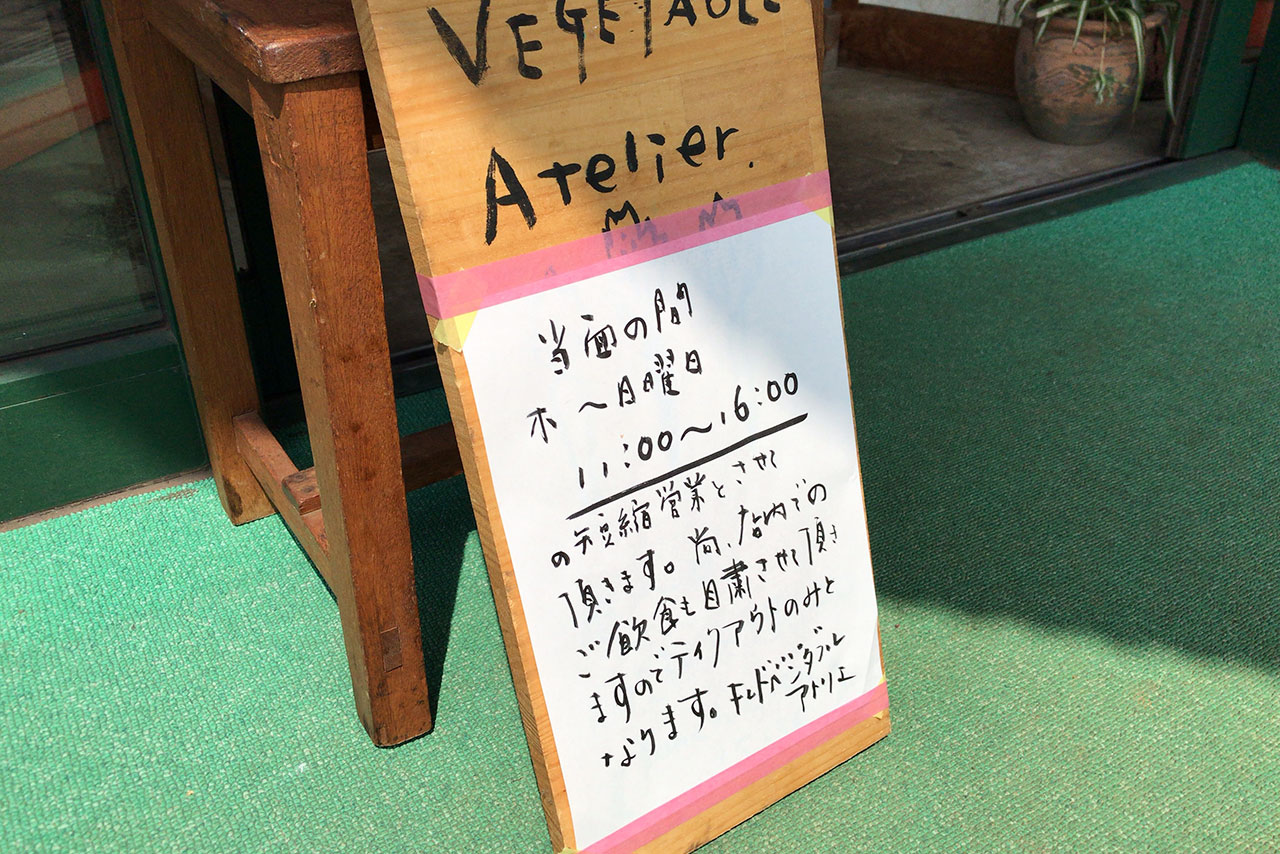 VEGETABLE
Atelier.
当面の間
木〜日曜日
11:00〜16:00
の短縮営業とさせて
頂きます。尚、店内での
ご飲食も自粛させて頂き
ますのでテイクアウトのみと
なります。キレドベジタブル
アトリエ